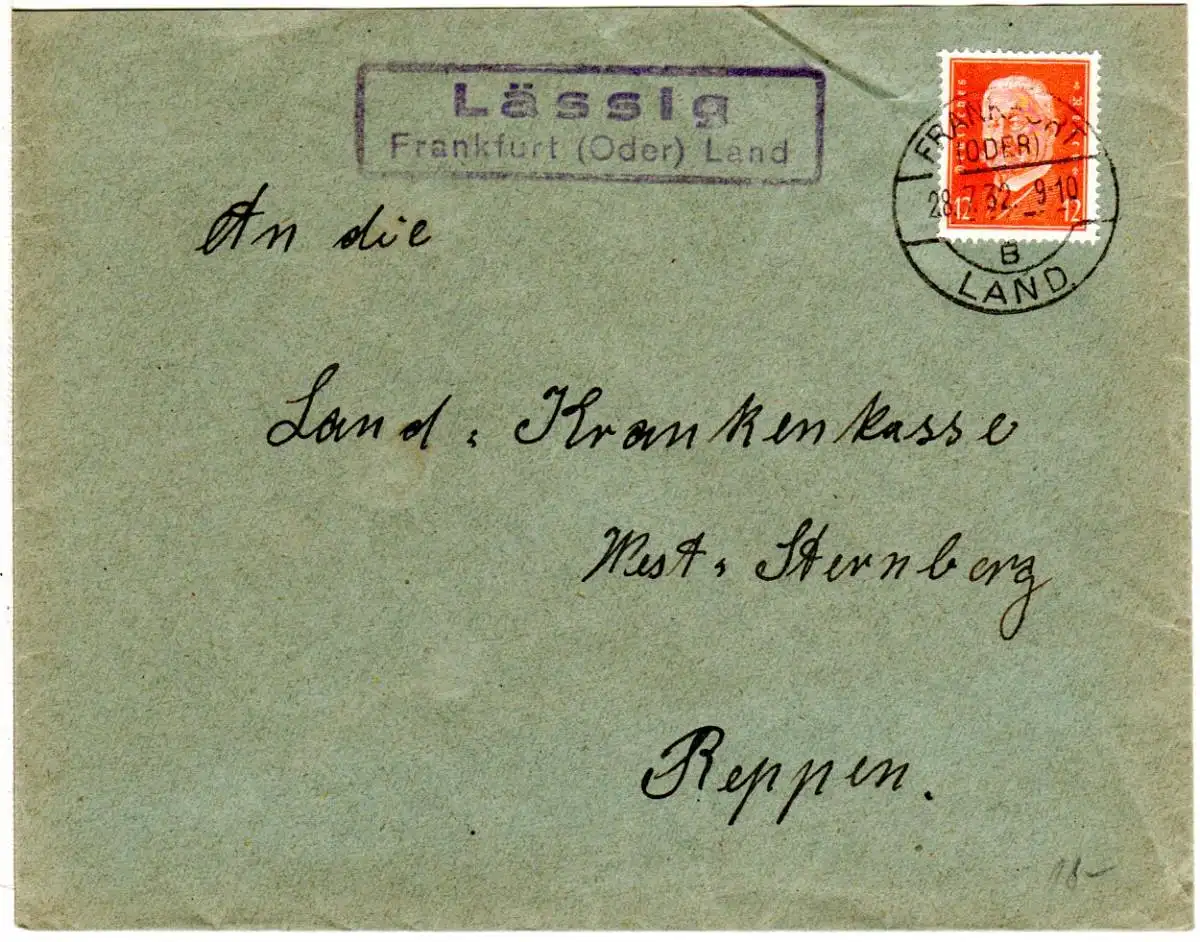 Lässig
Frankfurt (Oder) Land
DEUTSCHES
12 12
FRANKFURT
(ODER)
28.7.32. 9-10
B
LAND
An die
Land = Krankenkasse
West = Sternberg
Reppen.
18-